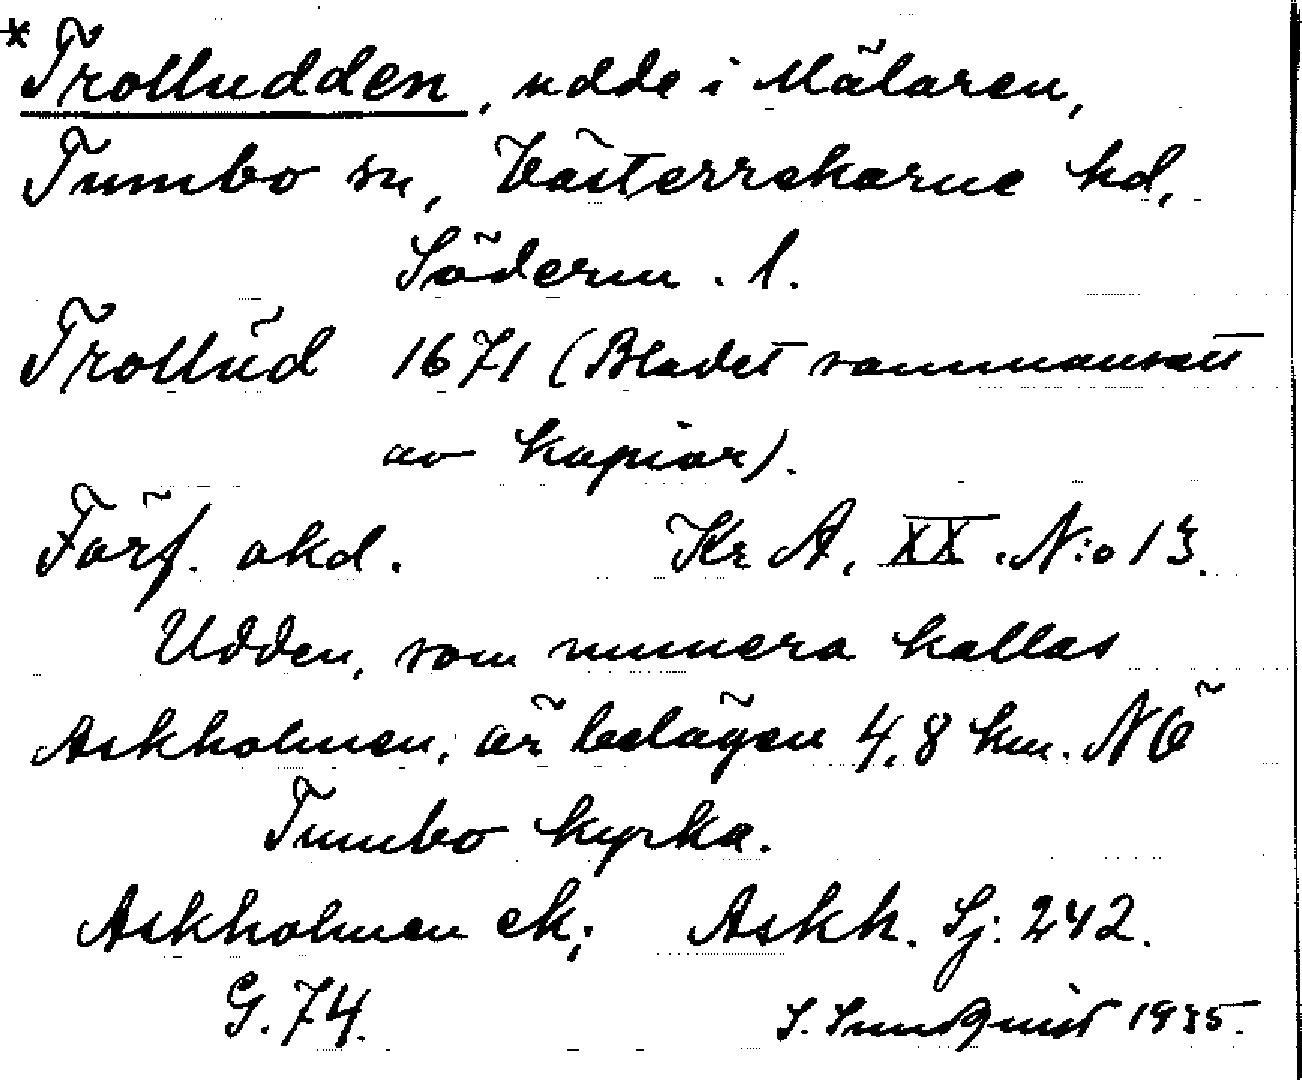 *Trolludden, udde i Mälaren,
Tumbo sn, Västerrekarne hd,
Söderm. l.
Trollüd 1671 (Bladet sammansatt
av kopior).
Förf. okd. Kr A, XX. N:o 13.
Udden, som numera kallas
Askholmen, är belägen 4,8 km. NÖ
Tumbo kyrka.
Askholmen ek; Askh. Sj: 242.
G. 74. S. Sundquist 1935.